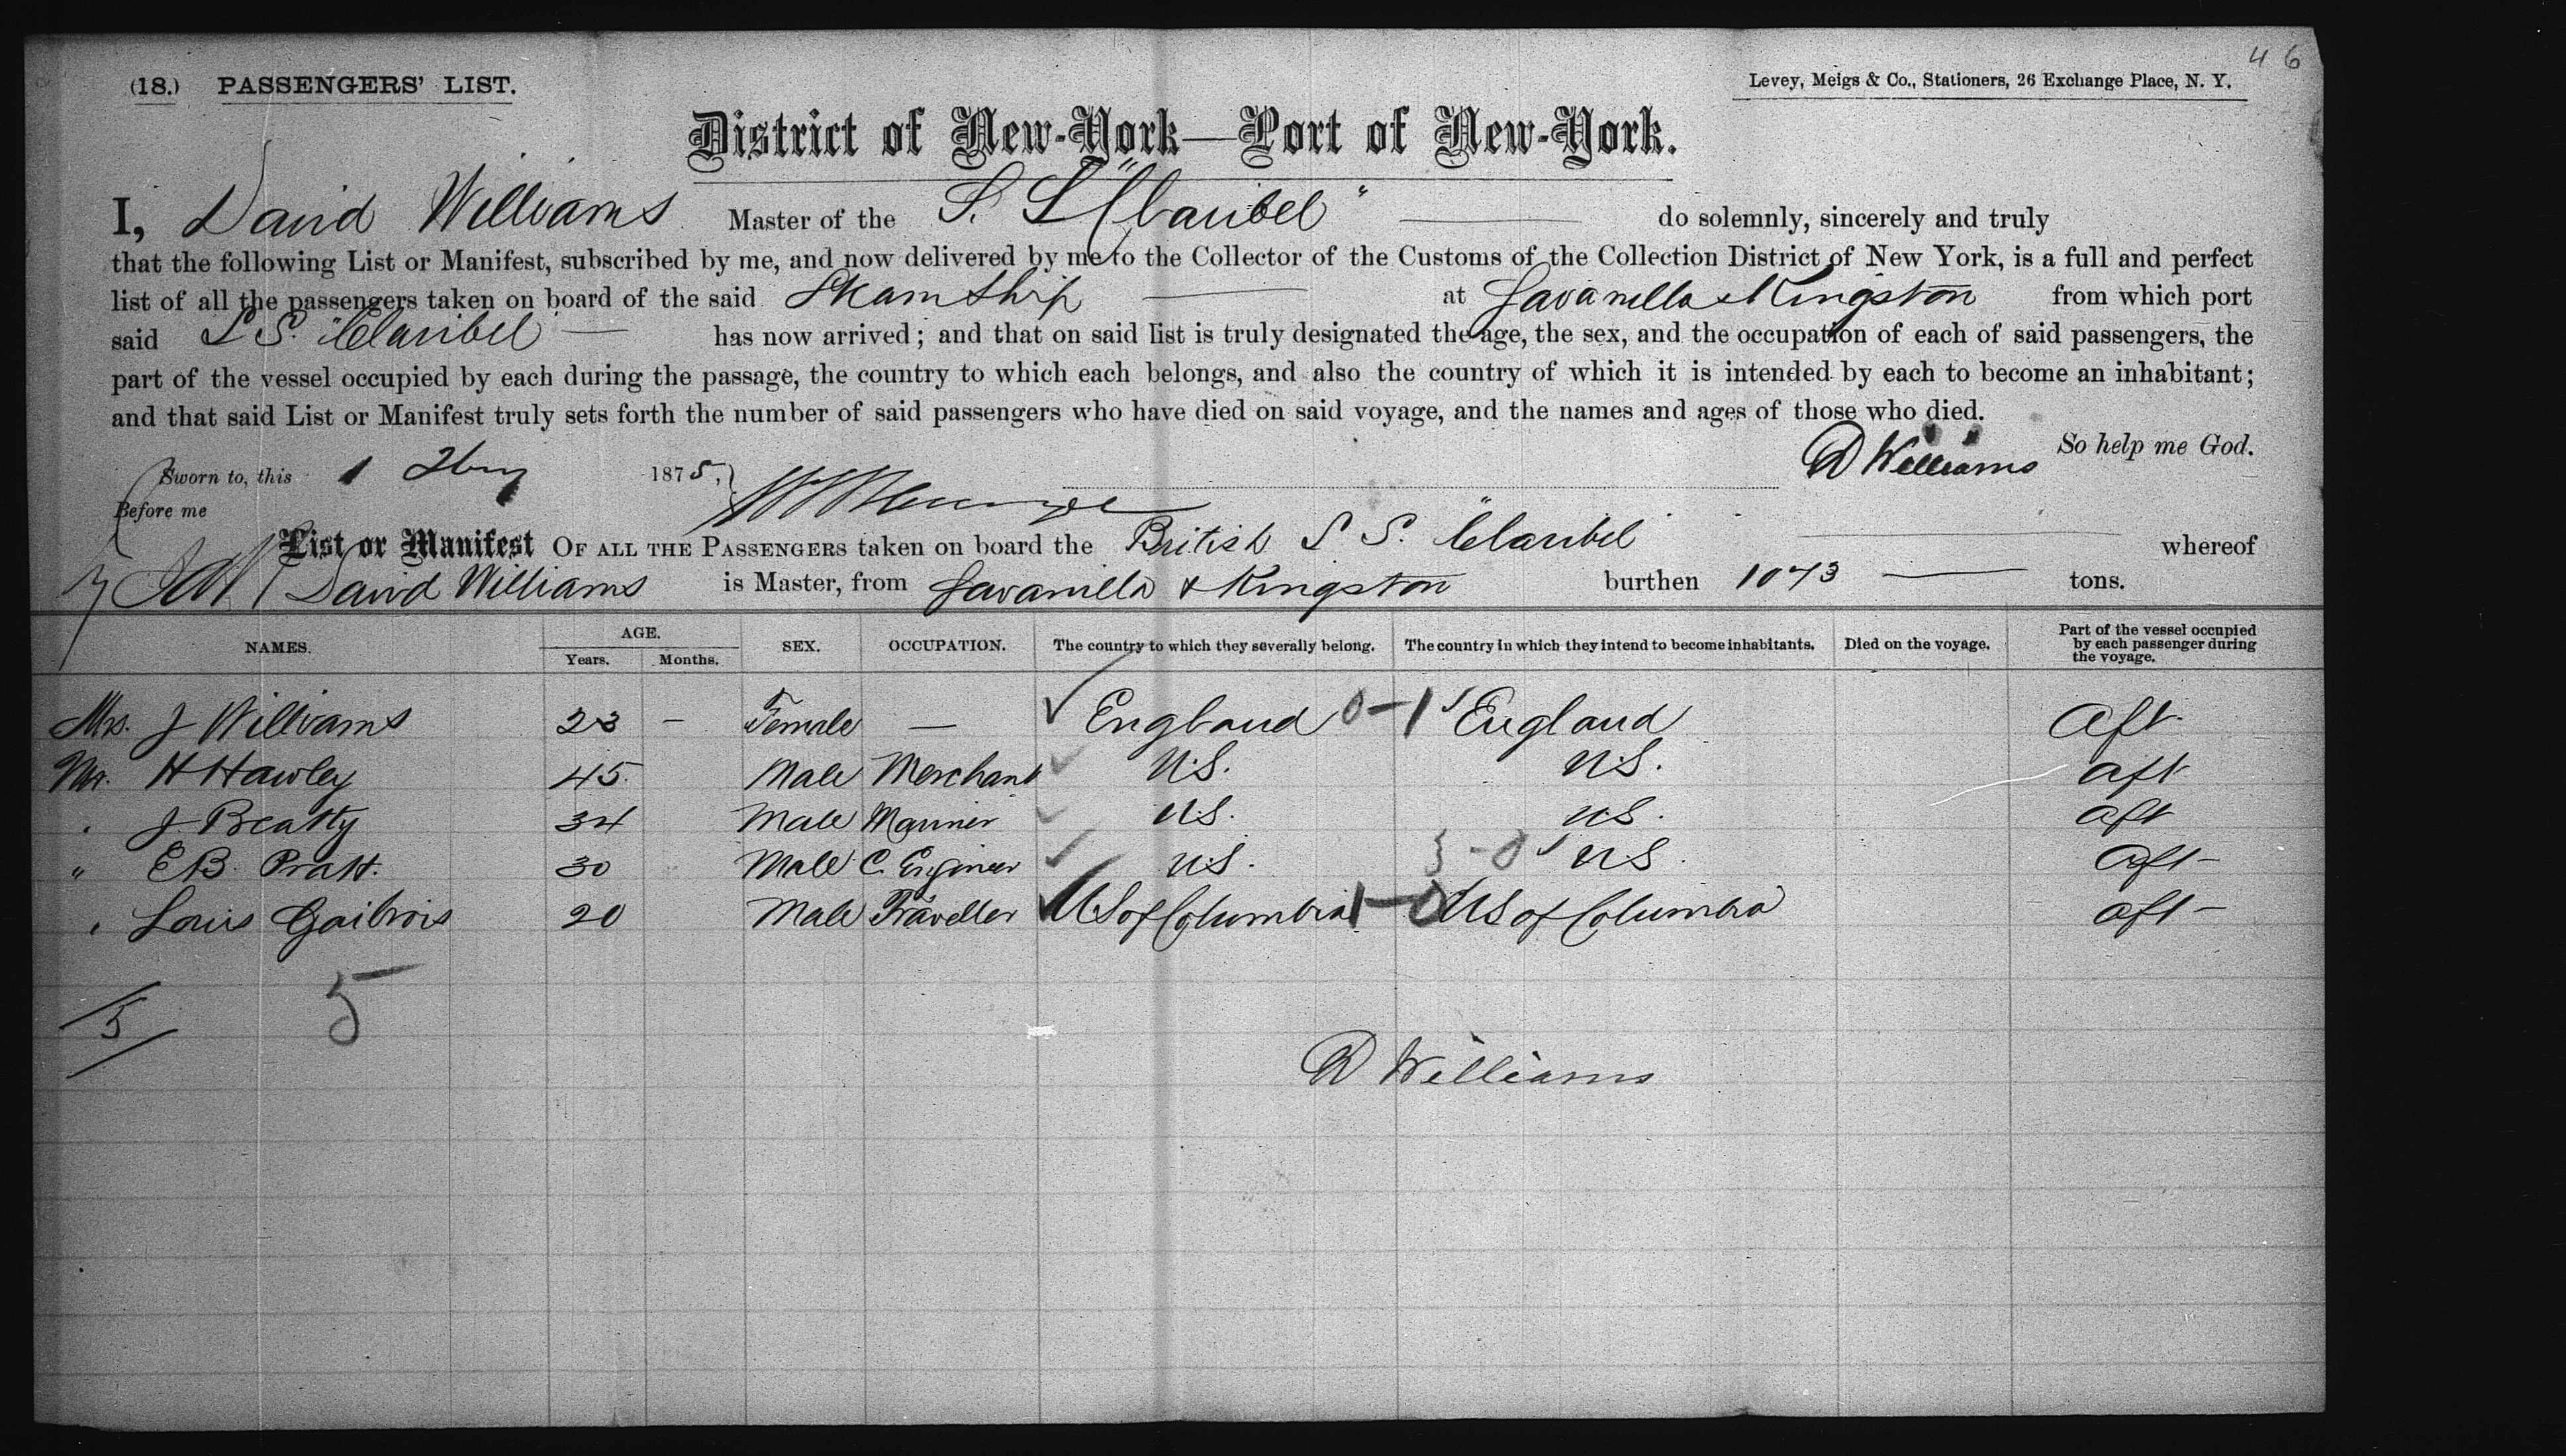 46
(18.) PASSENGERS' LIST. Levey, Meigs & Co., Stationers, 26 Exchange Place, N. Y.
District of New-York—Port of New-York.
I, David Williams Master of the S. S "Claribel" do solemnly, sincerely and truly
that the following List or Manifest, subscribed by me, and now delivered by me to the Collector of the Customs of the Collection District of New York, is a full and perfect
list of all the passengers taken on board of the said Steam Ship at Savanilla & Kingston from which port
said S S. "Claribel" has now arrived; and that on said list is truly designated the age, the sex, and the occupation of each of said passengers, the
part of the vessel occupied by each during the passage, the country to which each belongs, and also the country of which it is intended by each to become an inhabitant;
and that said List or Manifest truly sets forth the number of said passengers who have died on said voyage, and the names and ages of those who died.
So help me God.
Sworn to, this 1 1875, D Williams
Before me
List or Manifest OF ALL THE PASSENGERS taken on board the British S S. "Claribel" whereof
David Williams is Master, from Savanilla & Kingston burthen 1073 tons.
NAMES. AGE. Years. Months. SEX. OCCUPATION. The country to which they severally belong. The country in which they intend to become inhabitants. Died on the voyage. Part of the vessel occupied by each passenger during the voyage.
Mrs. J Williams 23 — Female — England 0-1 England Aft
Mr. H Hawley 45. Male Merchant U.S. U.S. aft
" J Beatty 34 Male Mariner U.S. U.S. aft
" E B. Pratt. 30 Male C. Engineer U.S. 3-0 U S. aft
" Louis Gaibrois 20 Male Traveller US of Columbia 1-0 US of Columbia aft
5 5
D Williams